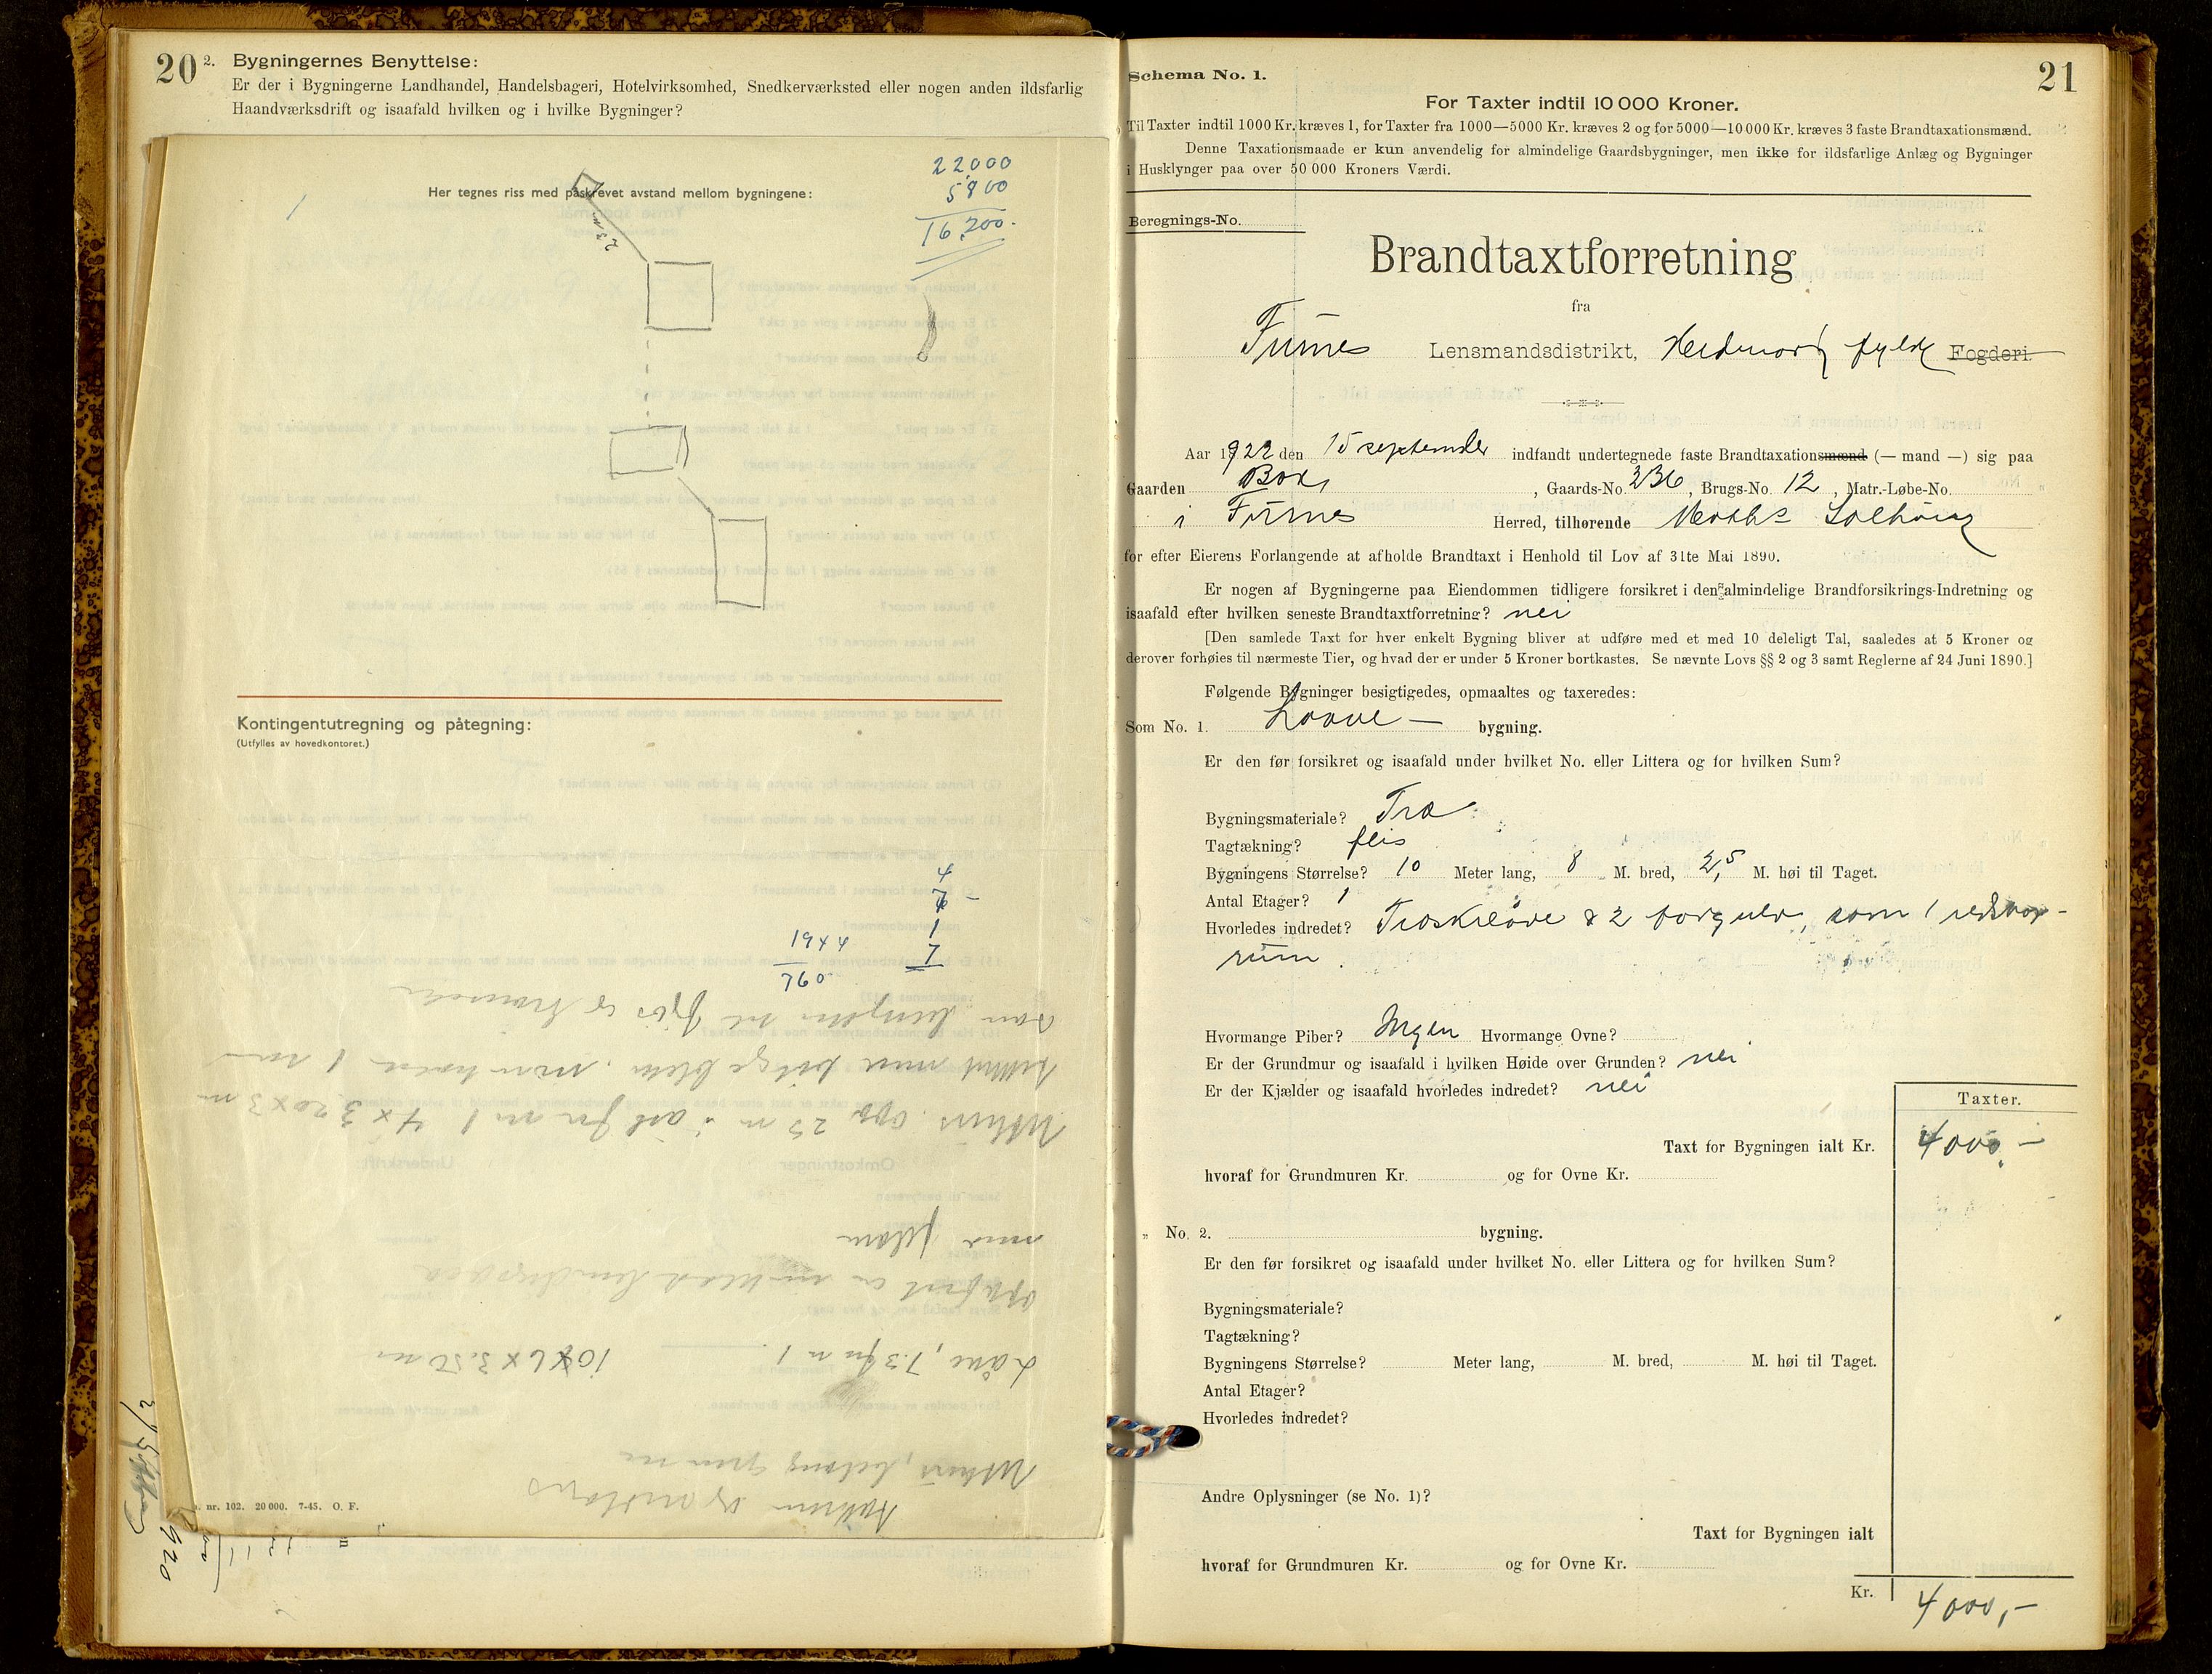 20
2. Bygningernes Benyttelse:
Er der i Bygningerne Landhandel, Handelsbageri, Hotelvirksomhed, Snedkerværksted eller nogen anden ildsfarlig
Haandværksdrift og isaafald hvilken og i hvilke Bygninger?
22000
5800
16,200.
Her tegnes riss med påskrevet avstand mellom bygningene:
1
23 m
Kontingentutregning og påtegning:
(Utfylles av hovedkontoret.)
4
1
7
1944
760
som benyttes til fjøs og
Uthus opp 25 m fra nr 1 4 x 3.20 x 3 m
oppført
med
Låve, 7.3 fra nr 1 10x6 x 3.50 m
Uthus,
nr. 102. 20 000. 7-45. O. F.
920
Schema No. 1.
21
For Taxter indtil 10 000 Kroner.
Til Taxter indtil 1000 Kr. kræves 1, for Taxter fra 1000—5000 Kr. kræves 2 og for 5000—10 000 Kr. kræves 3 faste Brandtaxationsmænd.
Denne Taxationsmaade er kun anvendelig for almindelige Gaardsbygninger, men ikke for ildsfarlige Anlæg og Bygninger
i Husklynger paa over 50 000 Kroners Værdi.
Beregnings-No.
Brandtaxtforretning
fra
Furnes Lensmandsdistrikt, Hedmark fylke Fogderi.
Aar 1922 den 15 september indfandt undertegnede faste Brandtaxationsmænd (— mand —) sig paa
Gaarden , Gaards-No. 236, Brugs-No. 12, Matr.-Løbe-No.
i Furnes Herred, tilhørende Solhaug
for efter Eierens Forlangende at afholde Brandtaxt i Henhold til Lov af 31te Mai 1890.
Er nogen af Bygningerne paa Eiendommen tidligere forsikret i den almindelige Brandforsikrings-Indretning og
isaafald efter hvilken seneste Brandtaxtforretning? nei
[Den samlede Taxt for hver enkelt Bygning bliver at udføre med et med 10 deleligt Tal, saaledes at 5 Kroner og
derover forhøies til nærmeste Tier, og hvad der er under 5 Kroner bortkastes. Se nævnte Lovs §§ 2 og 3 samt Reglerne af 24 Juni 1890.]
Følgende Bygninger besigtigedes, opmaaltes og taxeredes:
Som No. 1. Laave — bygning.
Er den før forsikret og isaafald under hvilket No. eller Littera og for hvilken Sum?
Bygningsmateriale? Træ
Tagtækning? flis
Bygningens Størrelse? 10 Meter lang, 8 M. bred, 2,5 M. høi til Taget.
Antal Etager? 1
Hvorledes indredet? Træskelaave & 2 forgulv, som 1 redskap-
rum.
Hvormange Piber? Ingen Hvormange Ovne?
Er der Grundmur og isaafald i hvilken Høide over Grunden? nei
Er der Kjælder og isaafald hvorledes indredet? nei
Taxter.
Taxt for Bygningen ialt Kr. 4000,—
hvoraf for Grundmuren Kr. og for Ovne Kr.
„ No. 2. bygning.
Er den før forsikret og isaafald under hvilket No. eller Littera og for hvilken Sum?
Bygningsmateriale?
Tagtækning?
Bygningens Størrelse? Meter lang, M. bred, M. høi til Taget.
Antal Etager?
Hvorledes indredet?
Andre Oplysninger (se No. 1)?
Taxt for Bygningen ialt
hvoraf for Grundmuren Kr. og for Ovne Kr.
Kr. 4000,—